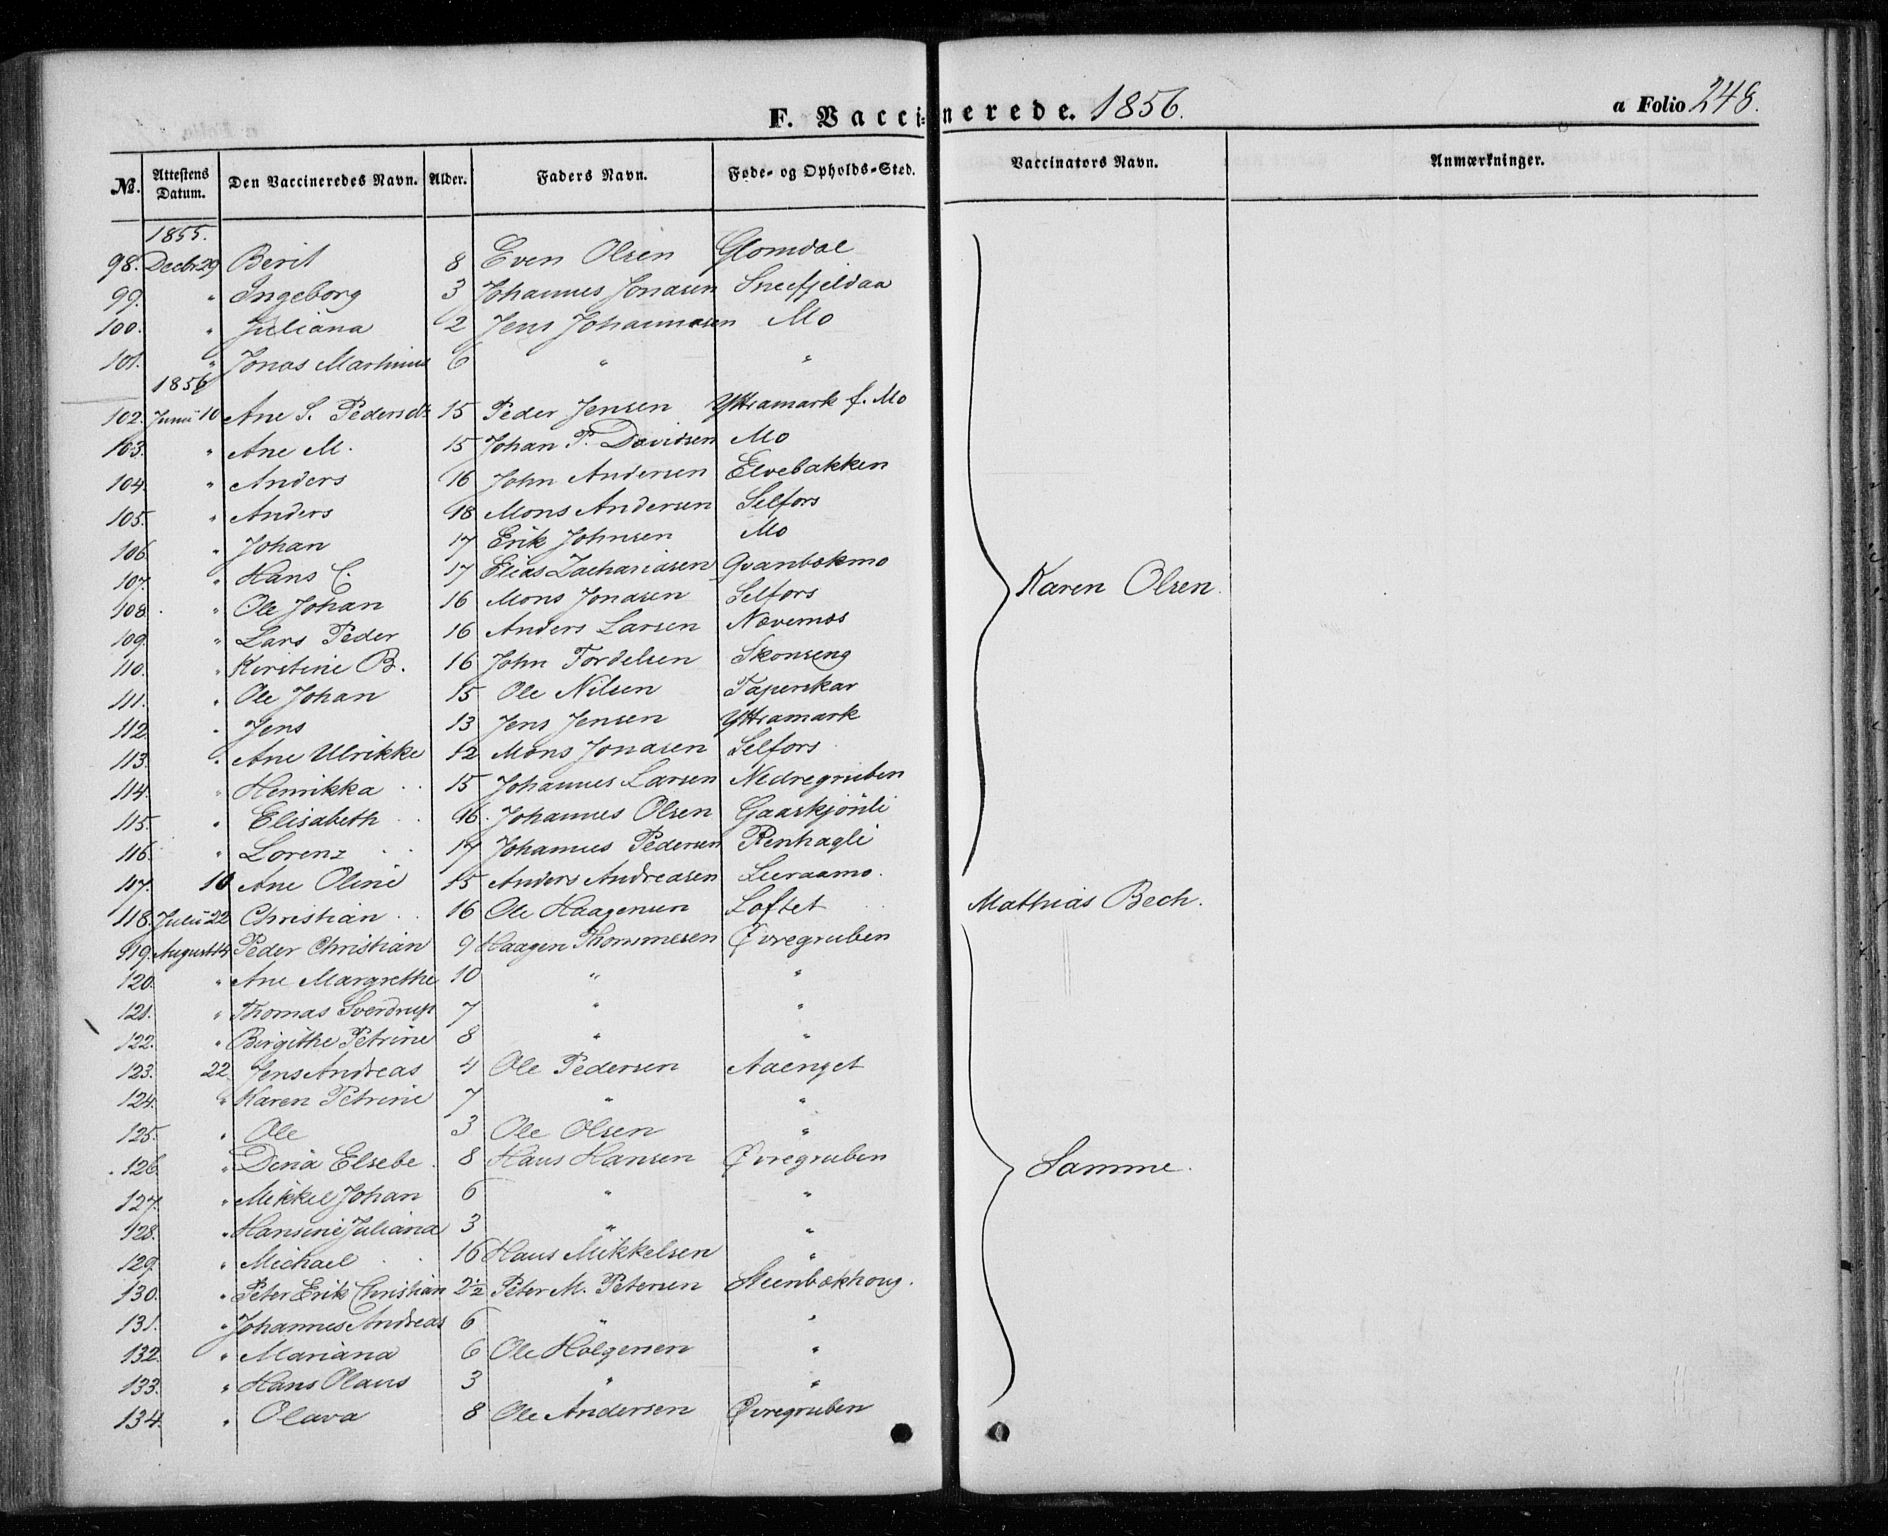 F. Vaccinerede. 1856.
a Folio 248.
No. Attestens Datum. Den Vaccineredes Navn. Alder. Faders Navn. Føde- og Opholds-Sted. Vaccinators Navn. Anmærkninger.
1855.
98. Decbr 29 Berit 8 Even Olsen Glomdal
99. " Ingeborg 3 Johannes Jonasen Sneefjeldaa
100. " Juliana 2 Jens Johannesen Mo
101. " Jonas Martinus 6 " "
1856
102. Junii 10 Ane S. Pedersdtr 15 Peder Jensen Yttramark f. Mo
103. " Ane M. 15 Johan P. Davidsen Mo
104. " Anders 16 John Andersen Elvebakken
105. " Anders 18 Mons Andersen Selfors
106. " Johan 17 Erik Johnsen Mo
107. " Hans C. 17 Elias Zachariasen Qvanbækmo
Karen Olsen.
108. " Ole Johan 16 Mons Jonasen Selfors
109. " Lars Peder 16 Anders Larsen Nævernæs
110. " Kirstine B. 16 John Tordelsen Skonseng
111. " Ole Johan 15 Ole Nilsen Taperskar
112. " Jens 13 Jens Jensen Yttramark
113. " Ane Ulrikke 12 Mons Jonasen Selfors
114. " Henrikka 15 Johannes Larsen Nedregruben
115. " Elisabeth 16. Johannes Olsen Gaaskjönli
116. " Lorenz 17 Johannes Pedersen Renhagli
117. 10 Ane Oline 15 Anders Andreasen Leeraamo.
118. Julii 22 Christian 16 Ole Haagensen Loftet Mathias Bech.
119. August 14 Peder Christian 9 Haagen Thommesen Øvregruben
120. " Ane Margrethe 10 " "
121. " Thomas Sverdrup 7 " "
122. " Birgithe Petrine 8 " "
123. 22. Jens Andreas 4 Ole Pedersen Aaenget
124. " Karen Petrine 7 " "
125. " Ole 3 Ole Olsen "
126. " Dina Elsebe 8 Hans Hansen Øvregruben
Samme.
127. " Mikkel Johan 6 " "
128. " Hansine Juliana 3 " "
129. " Michael 16 Hans Mikkelsen "
130. " Peter Erik Christian 2½ Peter M. Petersen Steenbækhoug.
131. " Johannes Andreas 6 " "
132. " Mariana 6 Ole Holgersen "
133. " Hans Olaus 3 " "
134. " Olava 8 Ole Andersen Øvregruben